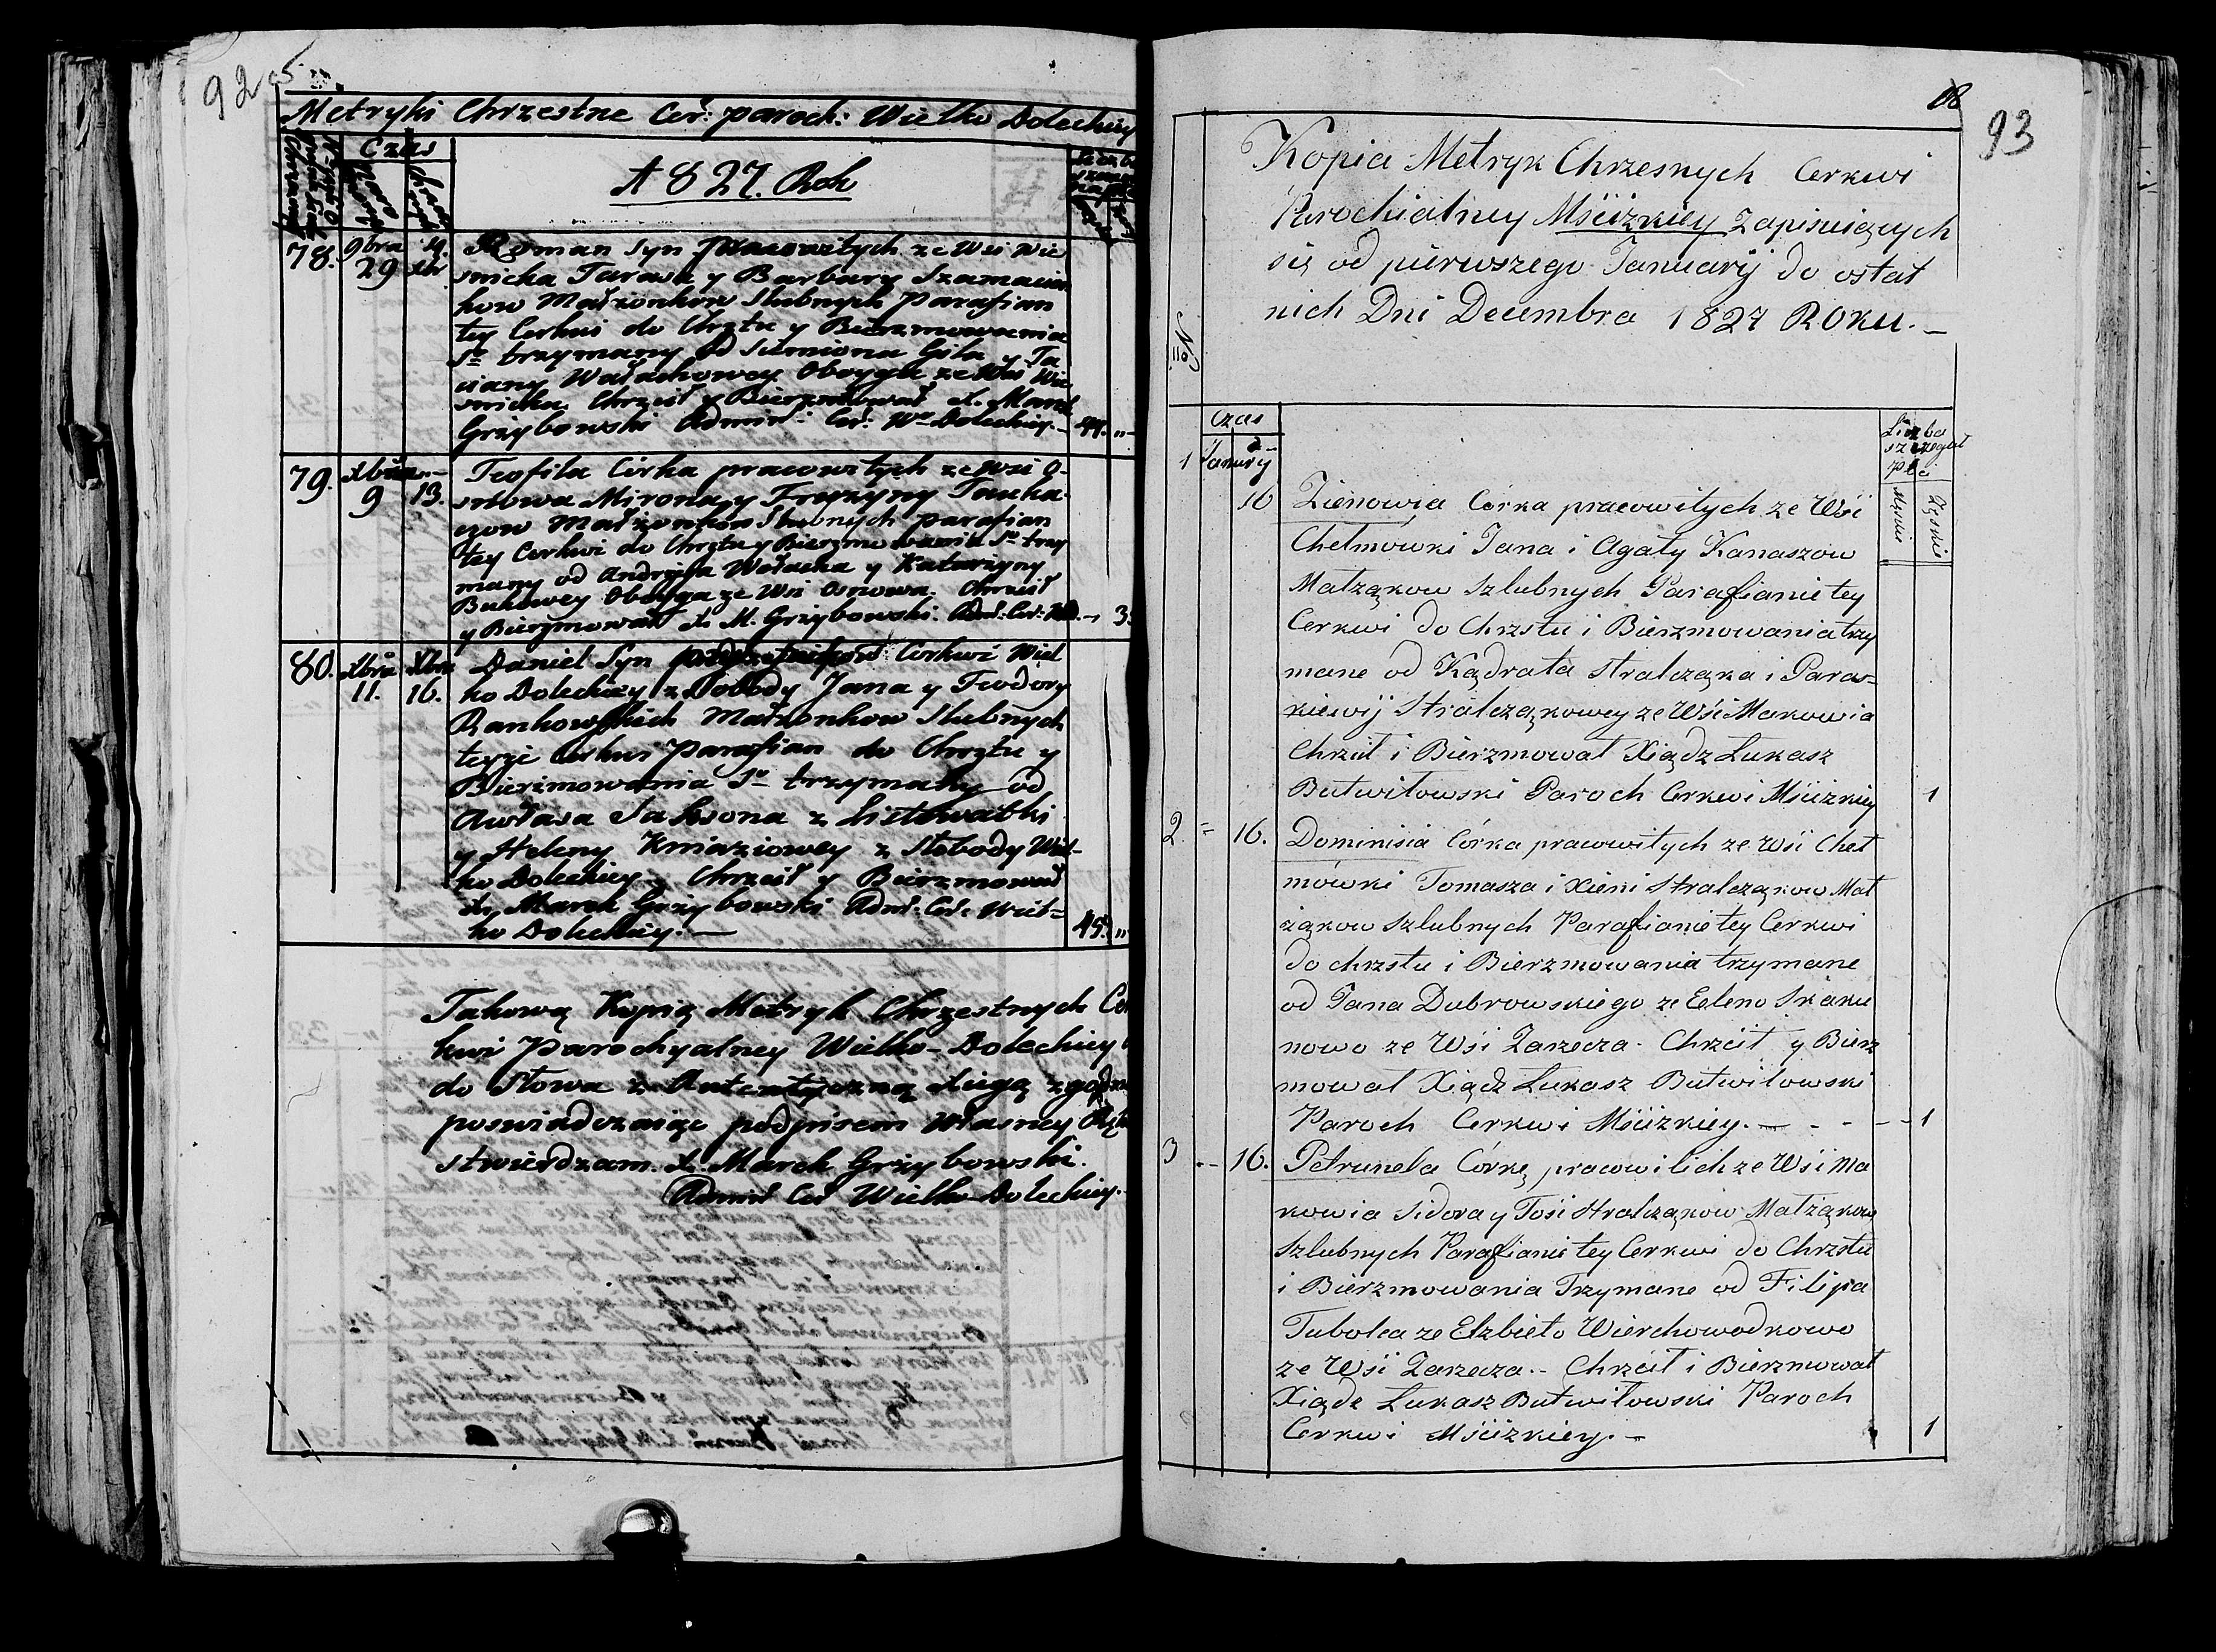 92
Metryki Chrzestne Cer: paroch: Wielko Doleckiey
Czas
1827. Rok
78. 9bra 29
Roman Syn pracowitych ze Wsi Wie
snicka Tarasa y Barbary Szamaciu
kow Małżonkow Slubnych Parafian
tey Cerkwi do Chrztu y Bierzmowania
Sº trzymany od Simiona Gila y Ta
ciany Wałachowey Oboyga ze Wsi Wie
snicka Chrzcił y Bierzmował X. Marek
Grzybowski Admin: Cer: Wº Doleckiey. 44. "
79. Xbra 9 13.
Teofila Córka pracowitych ze wsi O-
snowa Mirona y Fruzyny
Małżonkow Slubnych parafian
tey Cerkwi do Chrztu y Bierzmowania Sº trzy
many od Andrzeja Wołacha y Katarzyny
Bukowey Oboyga ze Wsi Osnowa. Chrzcił
y Bierzmował X. M. Grzybowski. Adm: Cer: 3
80. Xbra 11. Xbra 16.
Daniel Syn Cerkwi Wiel
ko Doleckiey z Słobody Jana y Teodory
Rankowskich Małżonkow Slubnych
teyże Cerkwi Parafian do Chrztu y
Bierzmowania Sº trzymany od
Awłasa z Listowatki
y Heleny Kniaziowey z Słobody Wiel-
ko Doleckiey. Chrzcił y Bierzmował
X. Marek Grzybowski Adm: Cer: Wiel=
ko Doleckiey. 45. "
Takową Kopią Metryk Chrzestnych Cer
kwi Parochyalney Wielko-Doleckiey
do Słowa z Autentyczną Xięgą
poswiadczaiąc podpisem Własney
stwierdzam. X. Marek Grzybowski.
Admin Cer Wielko-Doleckiey.
93
Kopia Metryk Chrzesnych Cerkwi
Parochialney Mściżkiey zapisuiących
się od pierwszego Januarÿ do ostat
nich Dni Decembra 1827 Roku.
No
Czas
Liczba
szczegul
Płci
Męskie
Żęskie
1 Januarÿ
16 Zienowia Córka pracowitych ze Wśi
Chełmówki Jana i Agaty Kanaszow
Małżąkow szlubnych Parafianie tey
Cerkwi do Chrzstu i Bierzmowania trzy
mane od Kądrata Stralcząka i Paras=
kiewij Stralcząkowey ze Wśi Makowia
Chrzcił i Bierzmował Xiądz Łukasz
Butwiłowski Paroch Cerkwi Mściżkiey 1
2 = 16. Dominisia Córka pracowitych ze wśi Cheł
mówki Tomasza i Xieni Stralcząkow Mał
żąkow szlubnych Parafianie tey Cerkwi
do chrzstu i Bierzmowania trzymane
od Jana Dubrowskiego ze Eeleno Skaku
nowo ze Wśi Zarzecza. Chrzcił y Bierz
mował Xiądz Łukasz Butwiłowski
Paroch Cerkwi Mściżkiey. 1
3 16. Petrunela Córkę pracowitich ze Wśi Ma
kowia Sidora y Tośi Stralcząkow Małżąkow
szlubnych Parafianie tey Cerkwi do Chrzstu
i Bierzmowania Trzymane od Filipa
Tubolca ze Elzbieto Wierchowodkowo
ze Wśi Zarzecza. Chrzcił i Bierzmował
Xiądz Łukasz Butwiłowski Paroch
Cerkwi Mściżkiey. 1